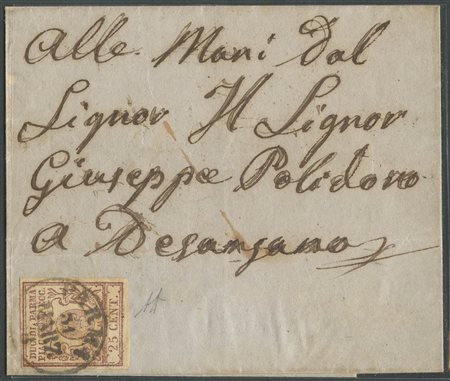 Alle Mani Dal
Signor Il Signor
Giuseppe Polidoro
A Desansano
DUC. DI PARMA PIAC. ECC.
25 CENT.